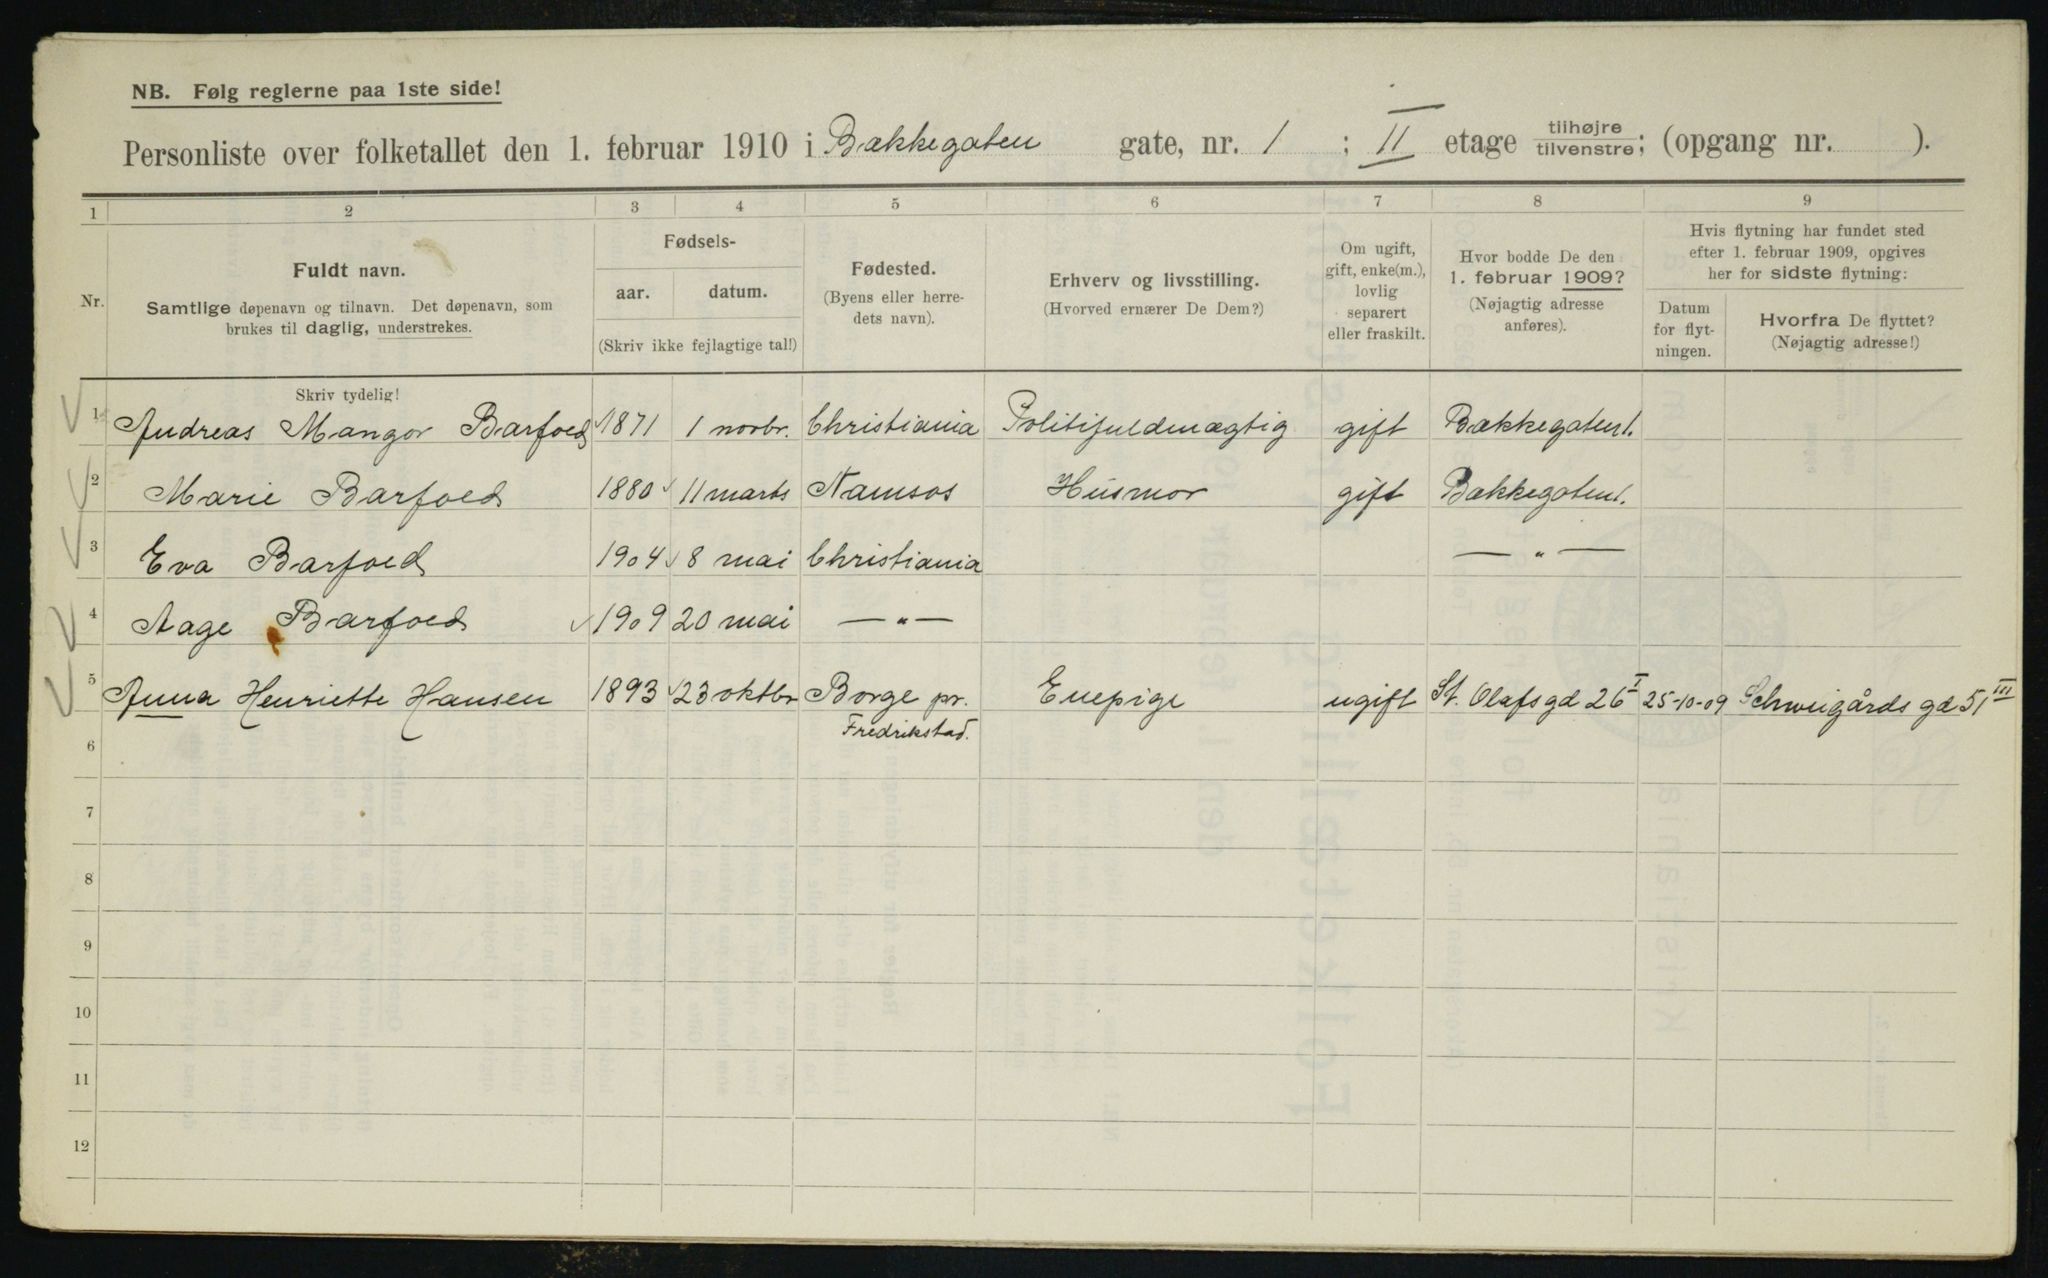 NB. Følg reglerne paa 1ste side!
I
Personliste over folketallet den 1. februar 1910 i Bækkegaten gate, nr. 1 ; II etage tilhøjre tilvenstre; (opgang nr. ).
1 2 3 4 5 6 7 8 9
Nr.
Fuldt navn.
Samtlige døpenavn og tilnavn. Det døpenavn, som
brukes til daglig, understrekes.
Fødsels-
aar. datum.
(Skriv ikke fejlagtige tal!)
Fødested.
(Byens eller herre-
dets navn).
Erhverv og livsstilling.
(Hvorved ernærer De Dem?)
Om ugift,
gift, enke(m.),
lovlig
separert
eller fraskilt.
Hvor bodde De den
1. februar 1909?
(Nøjagtig adresse
anføres).
Hvis flytning har fundet sted
efter 1. februar 1909, opgives
her for sidste flytning:
Datum
for flyt-
ningen.
Hvorfra De flyttet?
(Nøjagtig adresse!)
Skriv tydelig!
1 Andreas Mangor Barfoed 1871 1 novbr. Christiania Politifuldmægtig gift Bækkegaten 1.
2 Marie Barfoed 1880 11 marts Namsos Husmor gift Bækkegaten 1.
3 Eva Barfoed 1904 8 mai Christiania — " —
4 Aage Barfoed 1909 20 mai — " —
5 Anna Henriette Hansen 1893 23 oktbr Borge pr. Enepige ugift St. Olafsgd 26 I 25-10-09 Schweigårds gd 51 III
Fredrikstad.
6
7
8
9
10
11
12